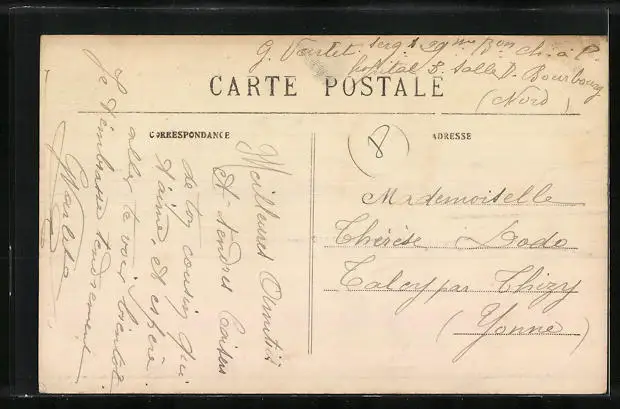 G. Vartet. serg t 29me Bon ch. à P.
hopital 3. salle D. Bourbourg
(Nord)
CARTE POSTALE
CORRESPONDANCE
ADRESSE
Meilleures Amitiés
et tendres baisers
de ton cousin qui
t'aime, et espère
aller te voir bientôt
Je t'embrasse tendrement
Mademoiselle
Thérèse Dodo
Talcy par Thizy
(Yonne)